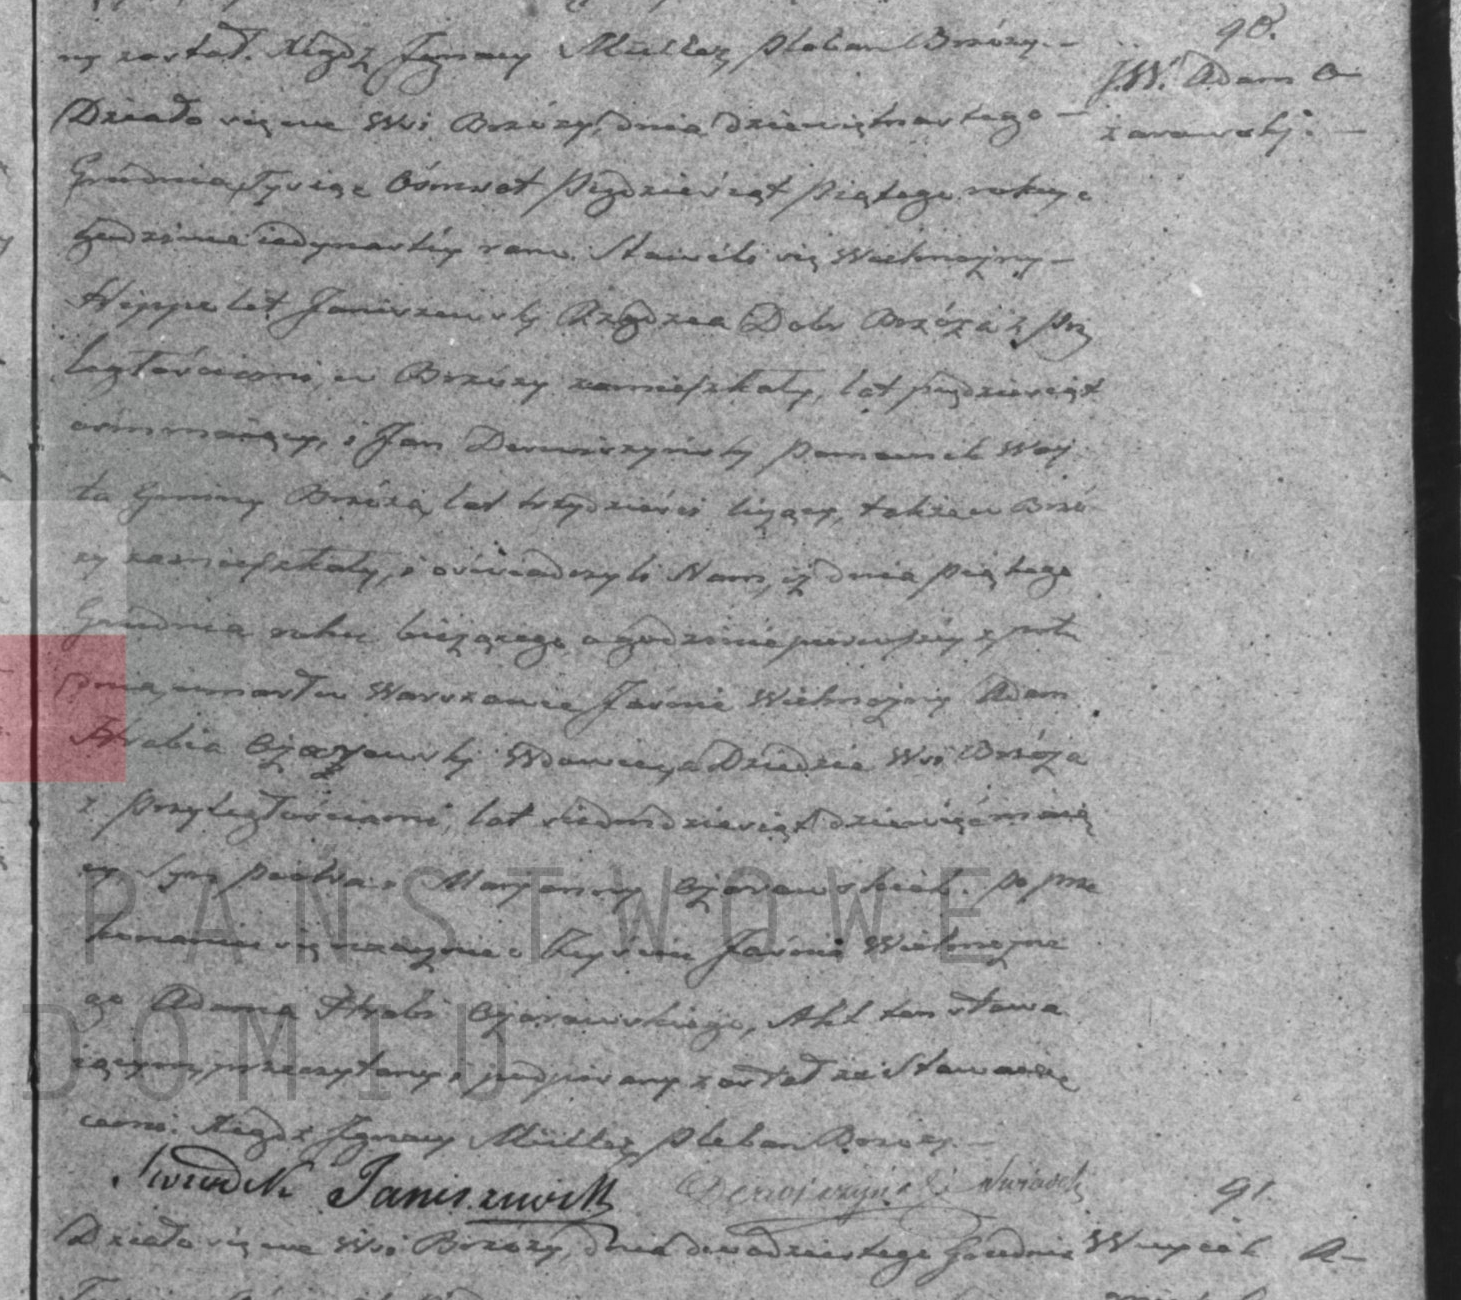 ny został. Xiądz Ignacy Müller, Pleban Brzózy. —
90.
J.W. Adam O-
żarowski. —
Działo się we Wsi Brzózy, dnia dziewiętnastego —
Grudnia Tysiąc Ośmset Pięćdziesiąt Piątego roku, o
godzinie iedynastéy rano. Stawili się Wielmożny —
Hippolit Janiszewski Rządzca Dobr Brzóza z Przy
ległościami, w Brzózy zamieszkały, lat pięćdziesiąt
ośm maiący, i Jan Derwiszyński Pomocnik Wóy
ta Gminy Brzóza, lat trzydzieści liczący, także w Brzó
zy zamieszkały, i oświadczyli Nam, iż dnia piątego
Grudnia roku bieżącego o godzinie pierwszéy z połu
dnia, umarł w Warszawie Jaśnie Wielmożny Adam
Hrabia Ożarowski Wdowiec, Dziedzic Wsi Brzóza
z Przyległościami, lat siedmdziesiąt dziewięć maią
cy, Syn Piotra i Maryanny Ożarowskich. Po prze
konaniu się naocznie o Zeyściu Jaśnie Wielmożne
go Adama Hrabi Ożarowskiego, Akt ten stawa
iącym przeczytany i podpisany został ze Stawaiącemi
cemi. Xiądz Ignacy Müller, Pleban Brzózy. —
Świadek Janiszewski Derwiszyński Świadek
91.
Działo się we Wsi Brzózy, dnia dwudziestego Grudnia
Woyciech A-
PAŃSTWOWE
DOMIU